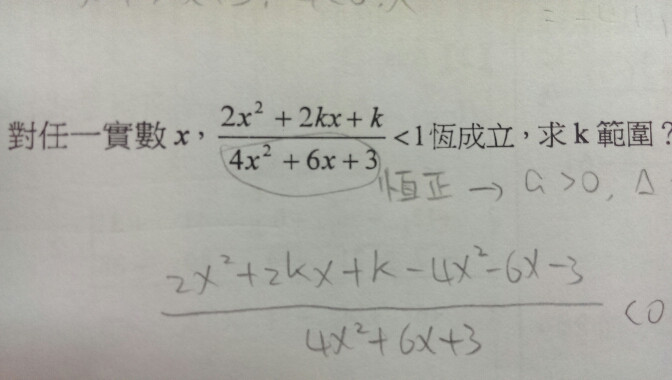 對任一實數 x，(2x² + 2kx + k)/(4x² + 6x + 3) < 1 恆成立，求 k 範圍？
恆正 → a > 0, Δ
(2x² + 2kx + k - 4x² - 6x - 3)/(4x² + 6x + 3) < 0